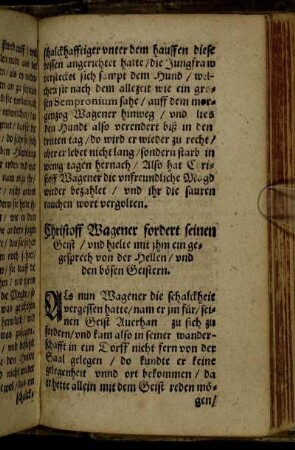 schalckhafftiger vnter dem hauffen diese
possen angerichtet hatte / die Jungfraw
verstecket sich sampt dem Hund / wel-
chen sie nach dem allezeit wie ein gros-
sen Sempronium sahe / auff dem mor-
gen zog Wagener hinweg / vnd lies
den Hundt also verendert biß in den
dritten tag / do wird er wieder zu recht /
aber er lebet nicht lang / sondern starb in
wenig tagen hernach / Also hat Cri-
stoff Wagener die vnfreundliche Magd
wieder bezahlet / vnd ihr die sauren
rauchen wort vergolten.
Christoff Wagener fordert seinen
Geist / vnd hielte mit ihm ein ge-
gesprech von der Hellen / vnd
den bösen Geistern.
ALs nun Wagener die schalckheit
vergessen hatte / nam er jm für / sei-
nen Geist Auerhan zu sich zu
fordern / vnd kam also in seiner wander-
schafft in ein Dorff nicht fern von der
Saal gelegen / do kundte er keine
gelegenheit vnnd ort bekommen / da
er hette allein mit dem Geist reden mö-
gen /